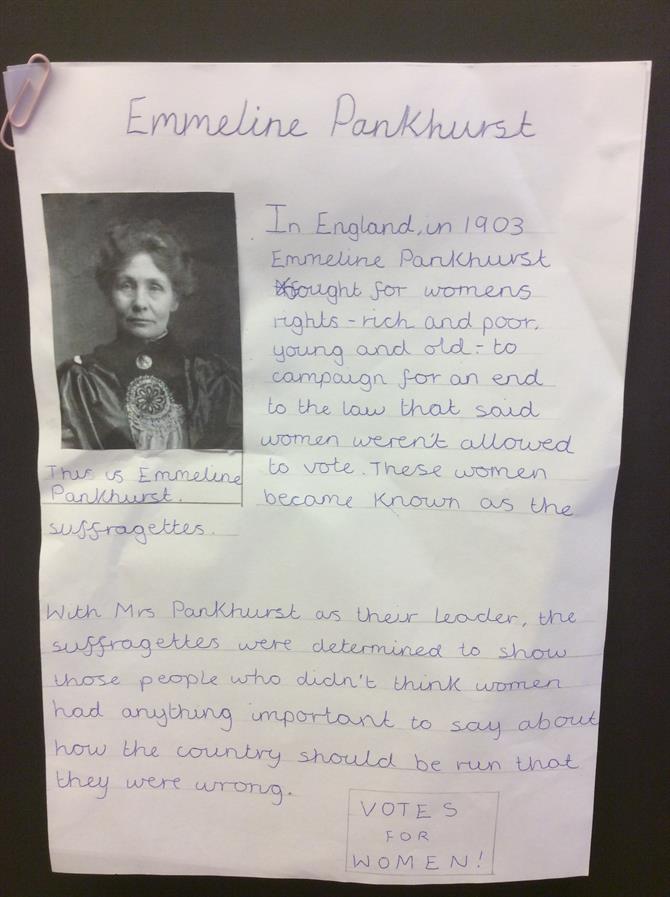 Emmeline Pankhurst
In England, in 1903
Emmeline Pankhurst
fought for womens
rights - rich and poor,
young and old - to
campaign for an end
to the law that said
women weren't allowed
to vote. These women
became known as the
suffragettes.
This is Emmeline
Pankhurst.
With Mrs Pankhurst as their leader, the
suffragettes were determined to show
those people who didn't think women
had anything important to say about
how the country should be run that
they were wrong.
VOTES
FOR
WOMEN!